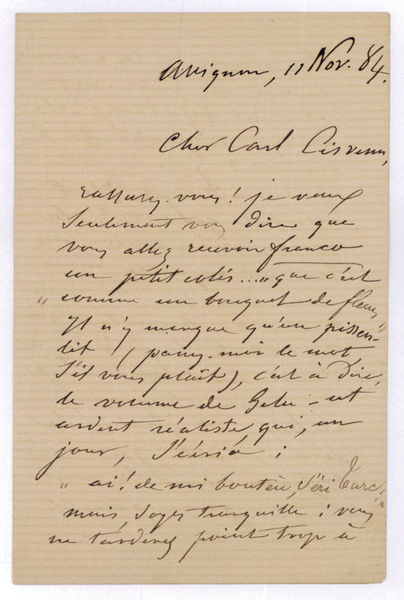 Avignon, 11 Nov. 84.
Cher Carl Cisvenn,
rassurez-vous! je veux
seulement vous dire que
vous allez recevoir franco
un petit colis... "que c'est
"comme un bouquet de fleurs"
Il n'y manque qu'un pissen-
lit! (passez-moi le mot
s'il vous plaît), c'est à dire,
le volume de Gelu - cet
ardent réaliste qui, un
jour, s'écria:
"ai! de mi boutèu, s'èri Turc!"
mais soyez tranquille: vous
ne tarderez point trop à